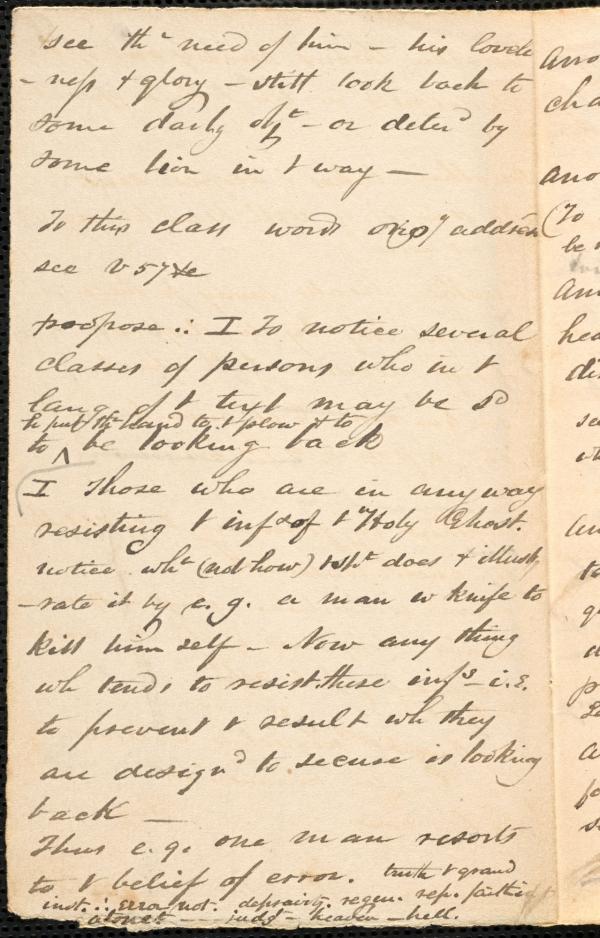 see thᵉ need of him – his loveli
-ness & glory – still look back to
some darlg objᵗ – or deterᵈ by
some lion in t way –
To this class words origʸ addressᵈ
see v 57 &c
propose ∴ I To notice several
classes of persons who in t
lang of t text may be sᵈ
to put thʳ hand to t plow & to
to ^ be looking back
I Those who are in any way
resisting t infˢ of t Holy Ghost.
notice whᵗ (not how) t Spᵗ does & illust
-rate it by e.g. a man w knife to
kill him self – Now any thing
wh tends to resist these infˢ – i.e.
to prevent t result wh they
are designᵈ to secure is looking
back –
Thus e.g. one man resorts
to t belief of error. truth t grand
inst. ∴ Error not. depravity. regen. rep. faith
atonet – judgt – heaven – hell.
ano
cha
ano
(To
be
an
hea
di